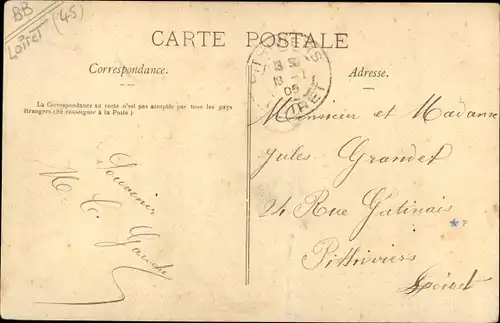 BB
Loiret (45)
CARTE POSTALE
Correspondance.
Adresse.
La Correspondance au recto n'est pas acceptée par tous les pays
étrangers.(Se renseigner à la Poste)
13 50
19 -1
05
LOIRET
Monsieur et Madame
Jules Grandet
24 Rue Gatinais
Pithiviers
Loiret
Souvenir
M. C.